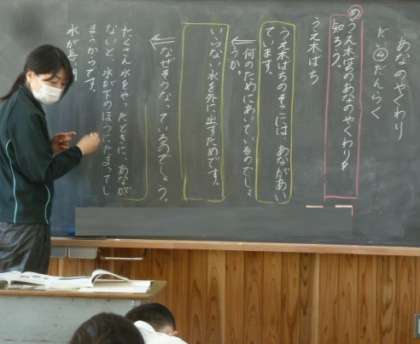 あなのやくわり
だい④だんらく
め うえ木ばちのあなのやくわりを
知ろう。
うえ木ばち
うえ木ばちのそこには あながあい
ています。
何のためにあいているのでしょ
うか。
いらない水を外に出すためです。
なぜそうなっているのでしょう。
たくさん水をやったときに、あなが
ないと、水がそこのほうにたまってし
まうからです。
水が